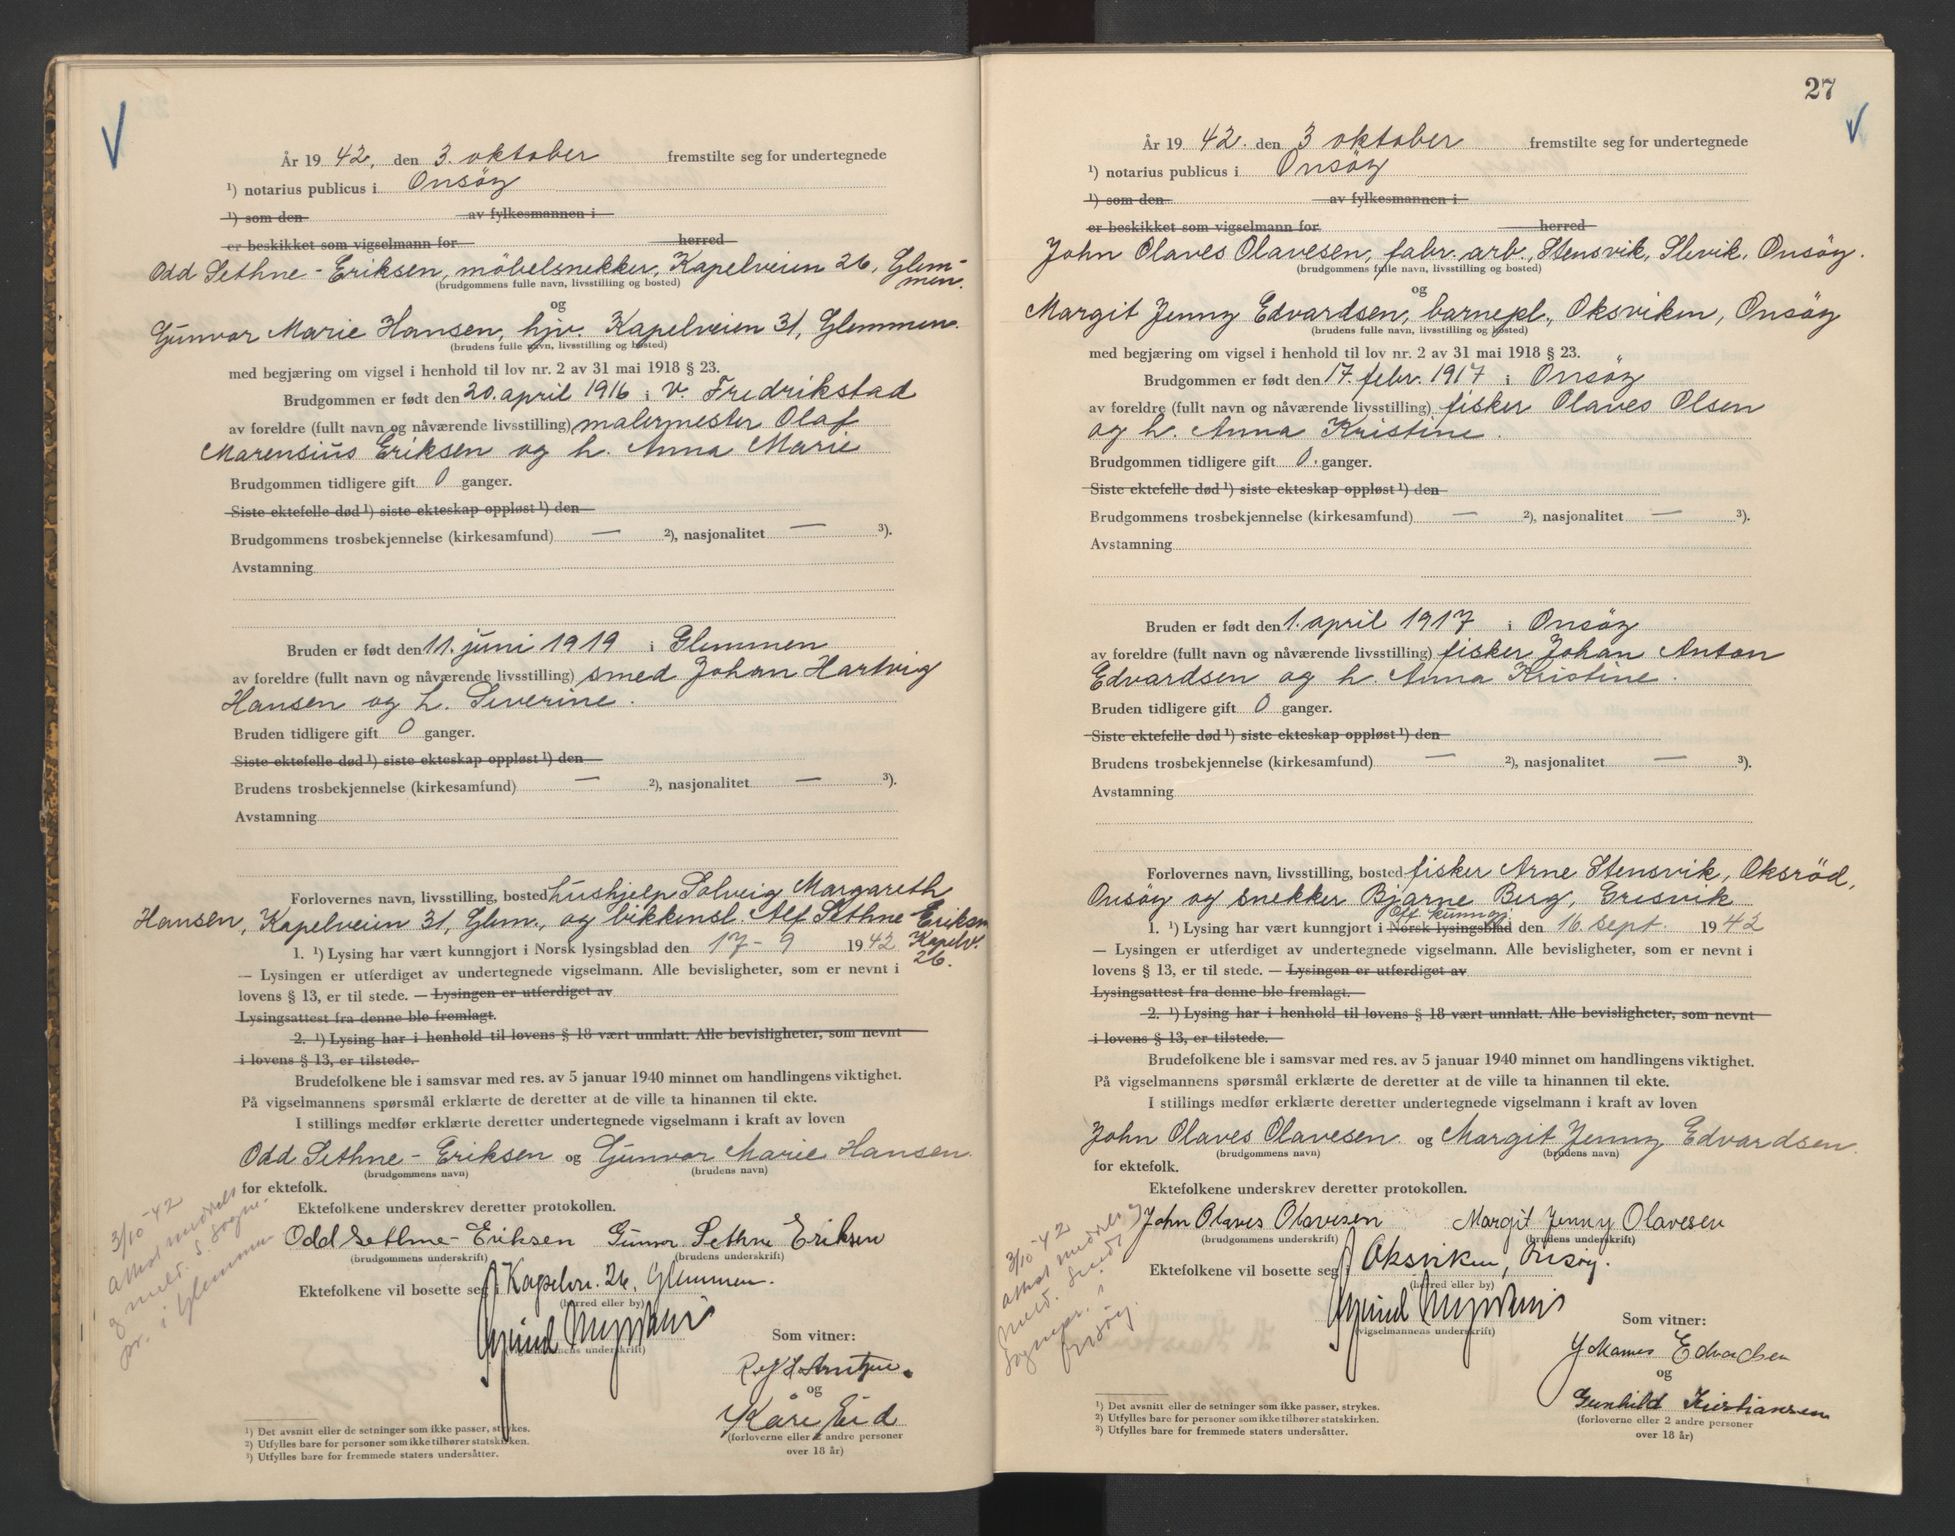 År 19 42, den 3. oktober fremstilte seg for undertegnede
¹) notarius publicus i Onsöy
¹) som den av fylkesmannen i
er beskikket som vigselmann for herred
Odd Sethne-Eriksen, möbelsnekker, Kapelveien 26, Glem-
men.
(brudgommens fulle navn, livsstilling og bosted)
og
Gunvor Marie Hansen, hjv. Kapelveien 31, Glemmen.
(brudens fulle navn, livsstilling og bosted)
med begjæring om vigsel i henhold til lov nr. 2 av 31 mai 1918 § 23.
Brudgommen er født den 20. april 1916 i V. Fredrikstad
av foreldre (fullt navn og nåværende livsstilling) malermester Olaf
Marensius Eriksen og h. Anna Marie
Brudgommen tidligere gift 0 ganger.
Siste ektefelle død ¹) siste ekteskap oppløst ¹) den
Brudgommens trosbekjennelse (kirkesamfund) — ²), nasjonalitet — ³).
Avstamning
Bruden er født den 11. juni 1919 i Glemmen
av foreldre (fullt navn og nåværende livsstilling) smed Johan Hartvig
Hansen og h. Severine.
Bruden tidligere gift 0 ganger.
Siste ektefelle død ¹) siste ekteskap oppløst ¹) den
Brudens trosbekjennelse (kirkesamfund) — ²), nasjonalitet — ³).
Avstamning
Forlovernes navn, livsstilling, bosted hushjelp Solveig Margareth
Hansen, Kapelveien 31, Glem., og likkensl. Alf Sethne Eriksen
Kapelv.
26.
1. ¹) Lysing har vært kunngjort i Norsk lysingsblad den 17-9 1942
— Lysingen er utferdiget av undertegnede vigselmann. Alle bevisligheter, som er nevnt i
lovens § 13, er til stede. — Lysingen er utferdiget av
Lysingsattest fra denne ble fremlagt.
2. ¹) Lysing har i henhold til lovens § 18 vært unnlatt. Alle bevisligheter, som nevnt
i lovens § 13, er tilstede.
Brudefolkene ble i samsvar med res. av 5 januar 1940 minnet om handlingens viktighet.
På vigselmannens spørsmål erklærte de deretter at de ville ta hinannen til ekte.
I stillings medfør erklærte deretter undertegnede vigselmann i kraft av loven
Odd Sethne-Eriksen og Gunvor Marie Hansen.
(brudgommens navn) (brudens navn)
for ektefolk.
Ektefolkene underskrev deretter protokollen.
Odd Sethne-Eriksen Gunvor Sethne Eriksen
(brudgommens underskrift) (brudens underskrift)
Ektefolkene vil bosette seg i Kapelvn. 26, Glemmen.
(herred eller by)
(vigselmannens underskrift)
Som vitner:
og
Kåre Eid
(forloverne eller 2 andre personer
over 18 år)
3/10-42
pr. i Glemmen
¹) Det avsnitt eller de setninger som ikke passer, strykes.
²) Utfylles bare for personer som ikke tilhører statskirken.
³) Utfylles bare for fremmede staters undersåtter.
27
År 19 42. den 3 oktober fremstilte seg for undertegnede
¹) notarius publicus i Onsöy
¹) som den av fylkesmannen i
er beskikket som vigselmann for herred
John Olaves Olavesen, fabr. arb., Stensvik, Slevik, Onsöy.
(brudgommens fulle navn, livsstilling og bosted)
og
Margit Jenny Edvardsen, barnepl., Oksviken, Onsöy
(brudens fulle navn, livsstilling og bosted)
med begjæring om vigsel i henhold til lov nr. 2 av 31 mai 1918 § 23.
Brudgommen er født den 17. febr. 1917 i Onsöy
av foreldre (fullt navn og nåværende livsstilling) fisker Olaves Olsen
og h. Anna Kristine.
Brudgommen tidligere gift 0. ganger.
Siste ektefelle død ¹) siste ekteskap oppløst ¹) den
Brudgommens trosbekjennelse (kirkesamfund) — ²), nasjonalitet — ³).
Avstamning
Bruden er født den 1. april 1917 i Onsöy
av foreldre (fullt navn og nåværende livsstilling) fisker Johan Anton
Edvardsen og h. Anna Kristine.
Bruden tidligere gift 0 ganger.
Siste ektefelle død ¹) siste ekteskap oppløst ¹) den
Brudens trosbekjennelse (kirkesamfund) — ²), nasjonalitet — ³).
Avstamning
Forlovernes navn, livsstilling, bosted fisker Arne Stensvik, Oksröd,
Onsöy og snekker Bjarne Berg, Gresvik
Off. kunngj.
1. ¹) Lysing har vært kunngjort i Norsk lysingsblad den 16. sept. 1942
— Lysingen er utferdiget av undertegnede vigselmann. Alle bevisligheter, som er nevnt i
lovens § 13, er til stede. — Lysingen er utferdiget av
Lysingsattest fra denne ble fremlagt.
2. ¹) Lysing har i henhold til lovens § 18 vært unnlatt. Alle bevisligheter, som nevnt
i lovens § 13, er tilstede.
Brudefolkene ble i samsvar med res. av 5 januar 1940 minnet om handlingens viktighet.
På vigselmannens spørsmål erklærte de deretter at de ville ta hinannen til ekte.
I stillings medfør erklærte deretter undertegnede vigselmann i kraft av loven
John Olaves Olavesen og Margit Jenny Edvardsen.
(brudgommens navn) (brudens navn)
for ektefolk.
Ektefolkene underskrev deretter protokollen.
John Olaves Olavesen Margit Jenny Olavesen
(brudgommens underskrift) (brudens underskrift)
Ektefolkene vil bosette seg i Oksviken, Onsöy.
(herred eller by)
(vigselmannens underskrift)
Som vitner:
Edvardsen
og
Gunhild Kristiansen
(forloverne eller 2 andre personer
over 18 år)
3/10-42
sognepr. i
Onsöy.
¹) Det avsnitt eller de setninger som ikke passer, strykes.
²) Utfylles bare for personer som ikke tilhører statskirken.
³) Utfylles bare for fremmede staters undersåtter.